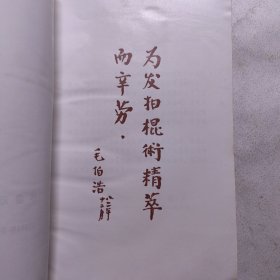 为发扬棍術精萃
而辛劳.
毛伯浩